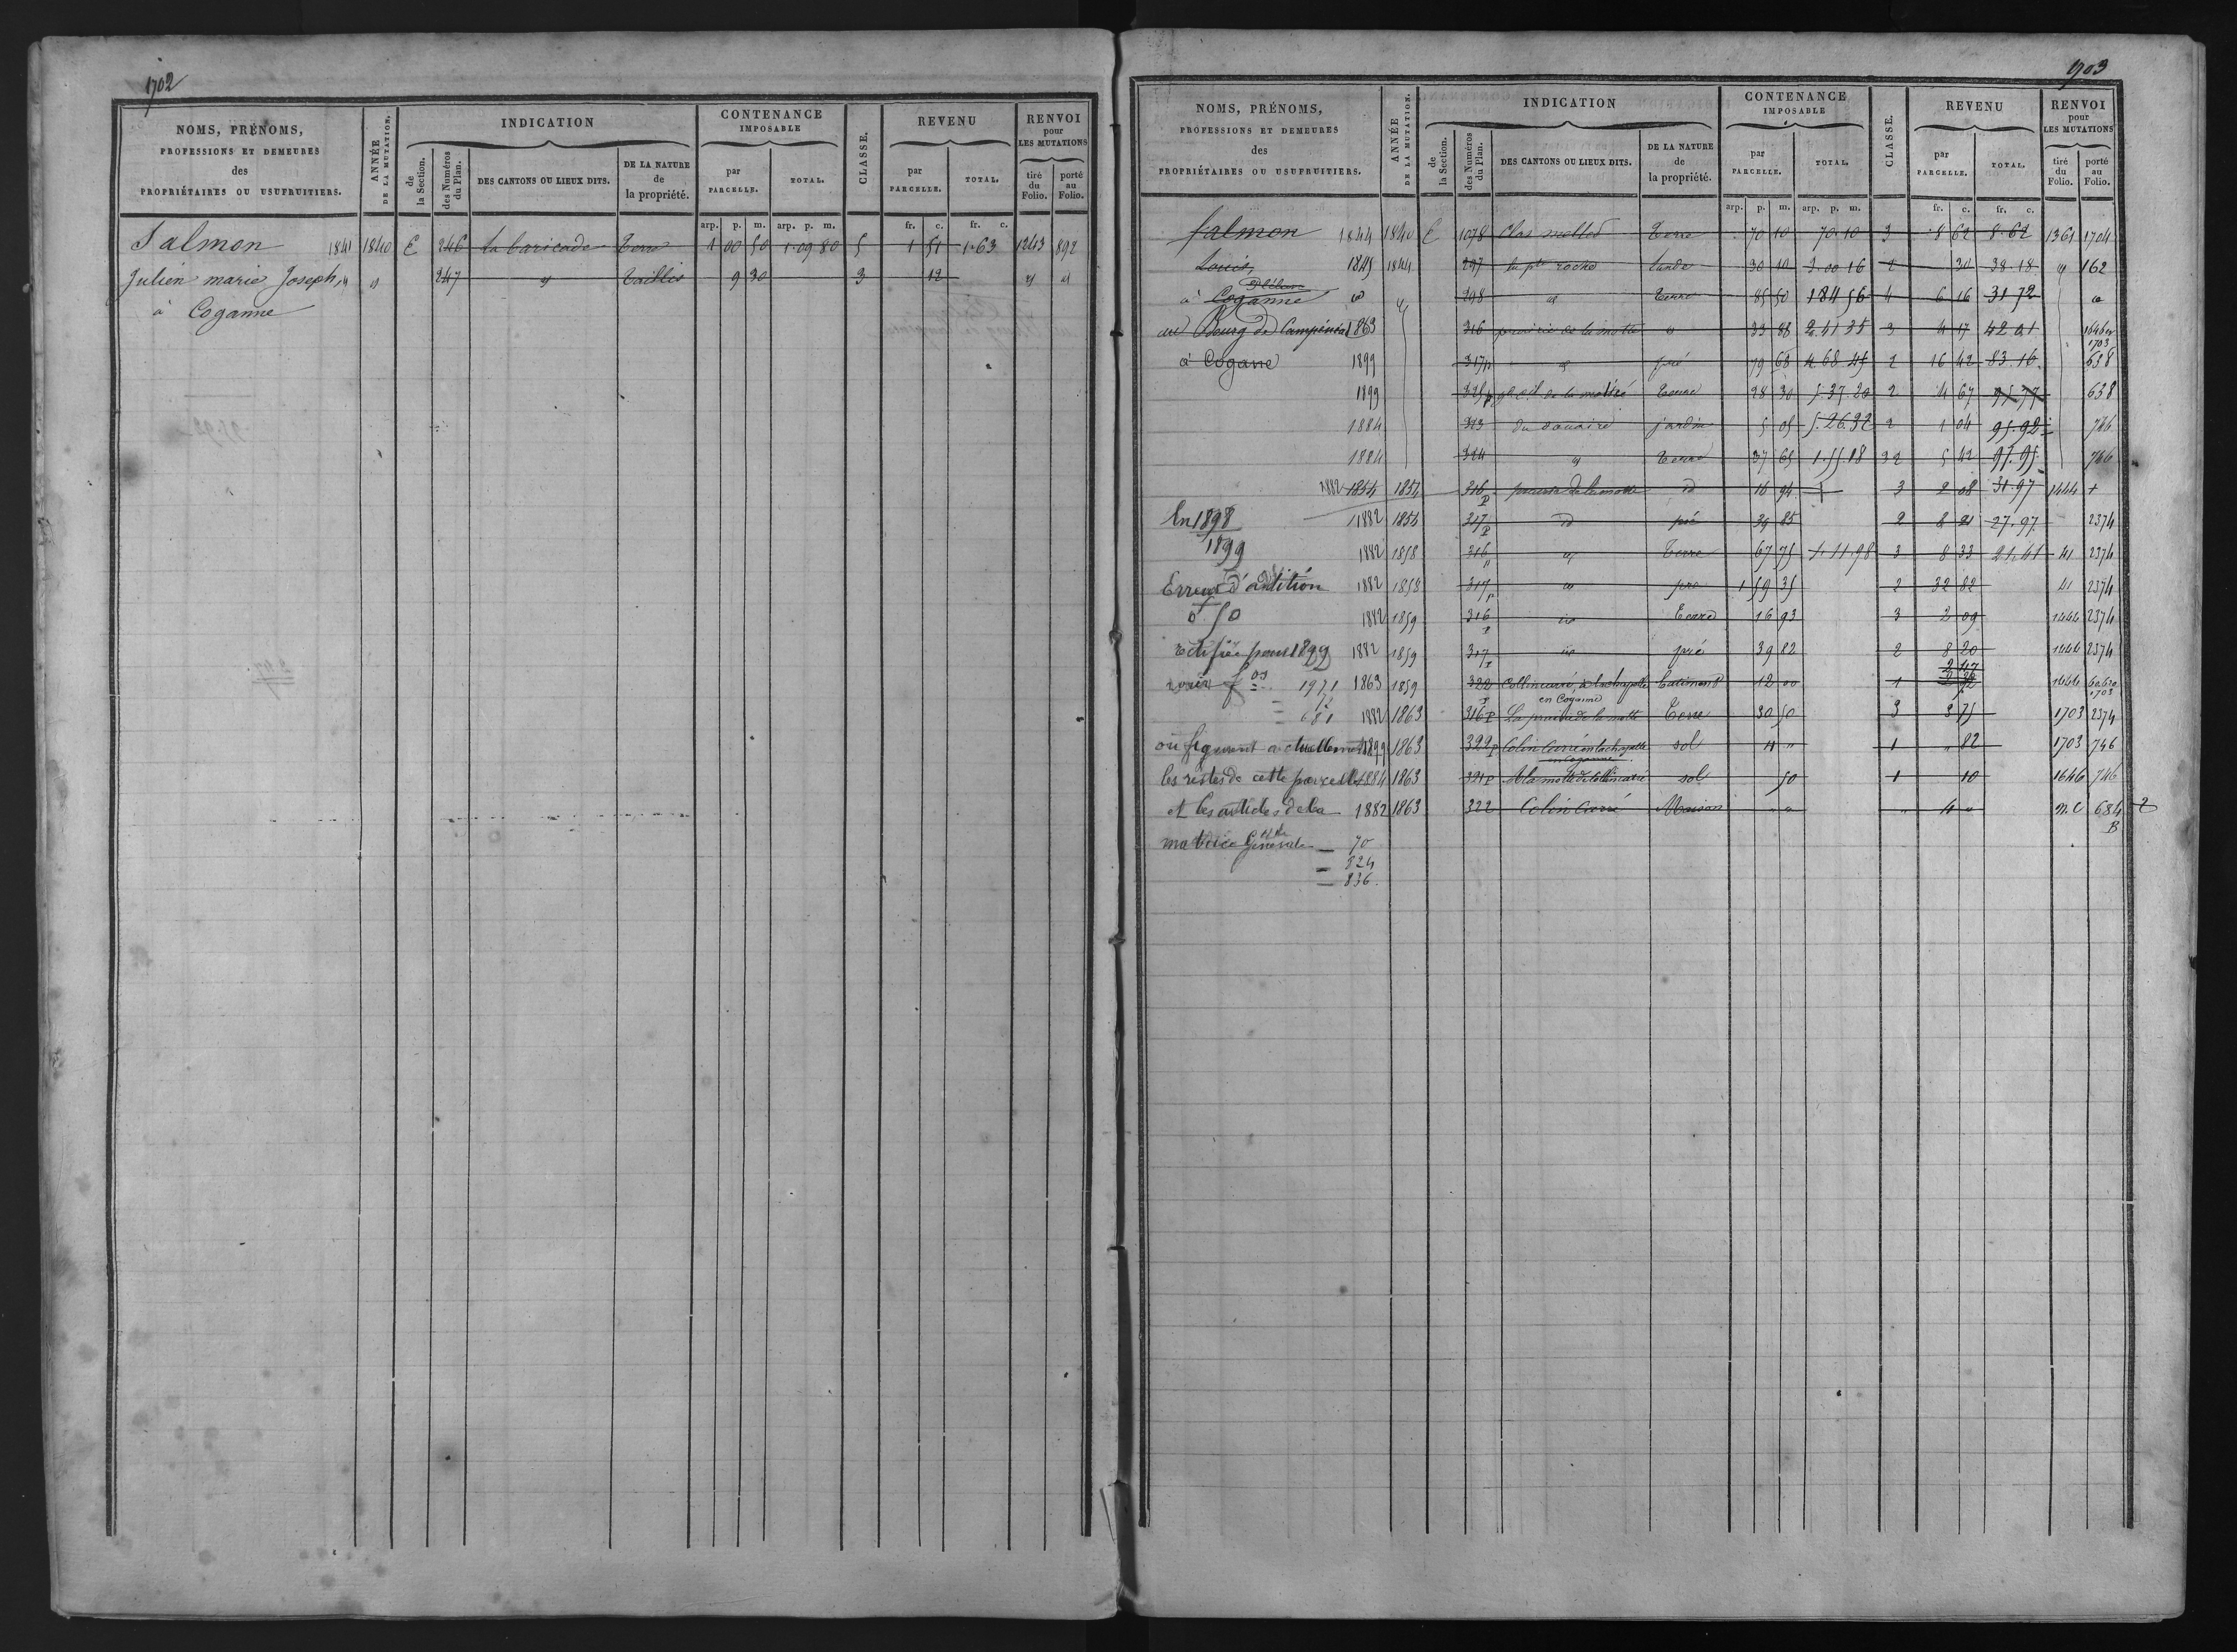 1702
NOMS, PRÉNOMS, PROFESSIONS ET DEMEURES des PROPRIÉTAIRES OU USUFRUITIERS. ANNÉE DE LA MUTATION. INDICATION CONTENANCE IMPOSABLE CLASSE. REVENU RENVOI pour LES MUTATIONS
de la Section. des Numéros du Plan. DES CANTONS OU LIEUX DITS. DE LA NATURE de la propriété. par PARCELLE. TOTAL. par PARCELLE. TOTAL. tiré du Folio. porté au Folio.
arp. p. m. arp. p. m. fr. c. fr. c.
Salmon 1841 1840 E 246 La baricade Terre 1 00 50 1.09 80 5 1 51 1.63 1243 892
Julien marie Joseph, " " 247 " Taillis 9 30 3 12 " "
à Coganne
1703
NOMS, PRÉNOMS, PROFESSIONS ET DEMEURES des PROPRIÉTAIRES OU USUFRUITIERS. ANNÉE DE LA MUTATION. INDICATION CONTENANCE IMPOSABLE CLASSE. REVENU RENVOI pour LES MUTATIONS
de la Section. des Numéros du Plan. DES CANTONS OU LIEUX DITS. DE LA NATURE de la propriété. par PARCELLE. TOTAL. par PARCELLE. TOTAL. tiré du Folio. porté au Folio.
arp. p. m. arp. p. m. fr. c. fr. c.
Salmon 1844 1840 E 1078 Clos mollet Terre 70 10 70.10 3 8 62 8.62 1361 1704
Louis, 1845 1844 297 la pte roche Lande 30 10 3.00 16 2 30 38.18 " 162
à Coganne 298 " Terre 85 50 1 84 56 4 6 16 31 72
au Bourg de Campénéac 1863 316 prairie de la motte " 33 88 2.41 35 3 4 17 42 01 1646 et 1703
à Cogane 1899 317p " pré 79 68 4.68 45 2 16 42 83.16 638
1899 325p de la motte Terre 28 30 5.37.20 2 4 67 95.77 638
1884 323 du douaire jardin 5 05 5.26.32 2 1 04 95.92 746
1884 324 " Terre 37 65 1.55.18 32 5 42 97.95 746
1882 1854 1854 316 p prairie de la motte id 16 94 3 2 08 31.97 1444
En 1898 1882 1855 317 p id pré 39 85 2 8 21 27.97 2374
1899 1882 1858 316 " Terre 67 75 4.11.98 3 8 33 21.61 41 2374
Erreur d'addition 1882 1858 317 p " pré 1 59 35 2 32 82 41 2374
0.50 1882 1859 316 p id Terre 16 93 3 2 09 1444 2374
rectifiée pour 1899 1882 1859 317 p id pré 39 82 2 8 20 1444 2374
voir fos 1971 1863 1859 322 p de la chapelle en Coganne Batiment 12 00 1 1444 1703
= 681 1882 1863 316 p La prairie de la motte Terre 30 50 3 3 75 1703 2374
où figurent actuellement 1899 1863 322 p Colin Carré en la chapelle en Coganne sol 11 " 1 " 82 1703 746
les restes de cette parcelle 1884 1863 321 p A la motte sol 50 1 10 1646 746
et les articles de la 1882 1863 322 Colin Carré Maison " " " 4 " n.c 684 B 2
matrice Générale _ 70
= 824
= 836.